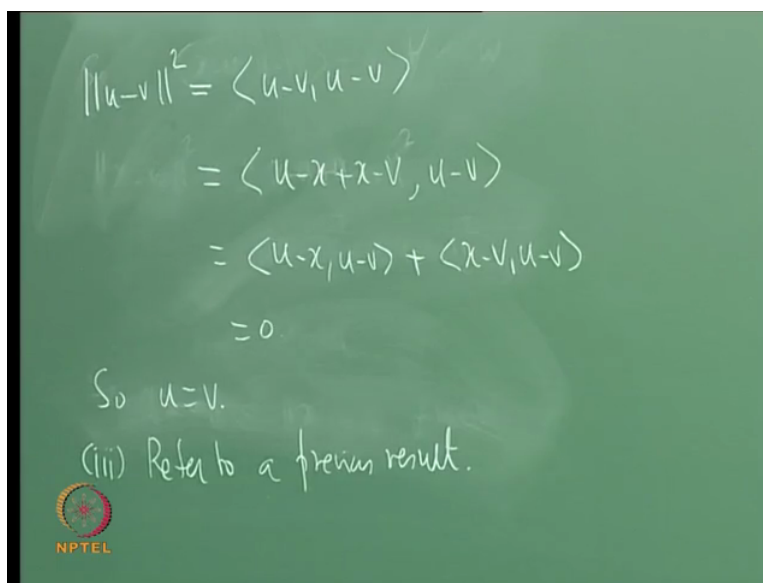 ||u-v||² = <u-v, u-v>
= <u-x+x-v, u-v>
= <u-x, u-v> + <x-v, u-v>
= 0.
So u=v.
(iii) Refer to a previous result.
NPTEL